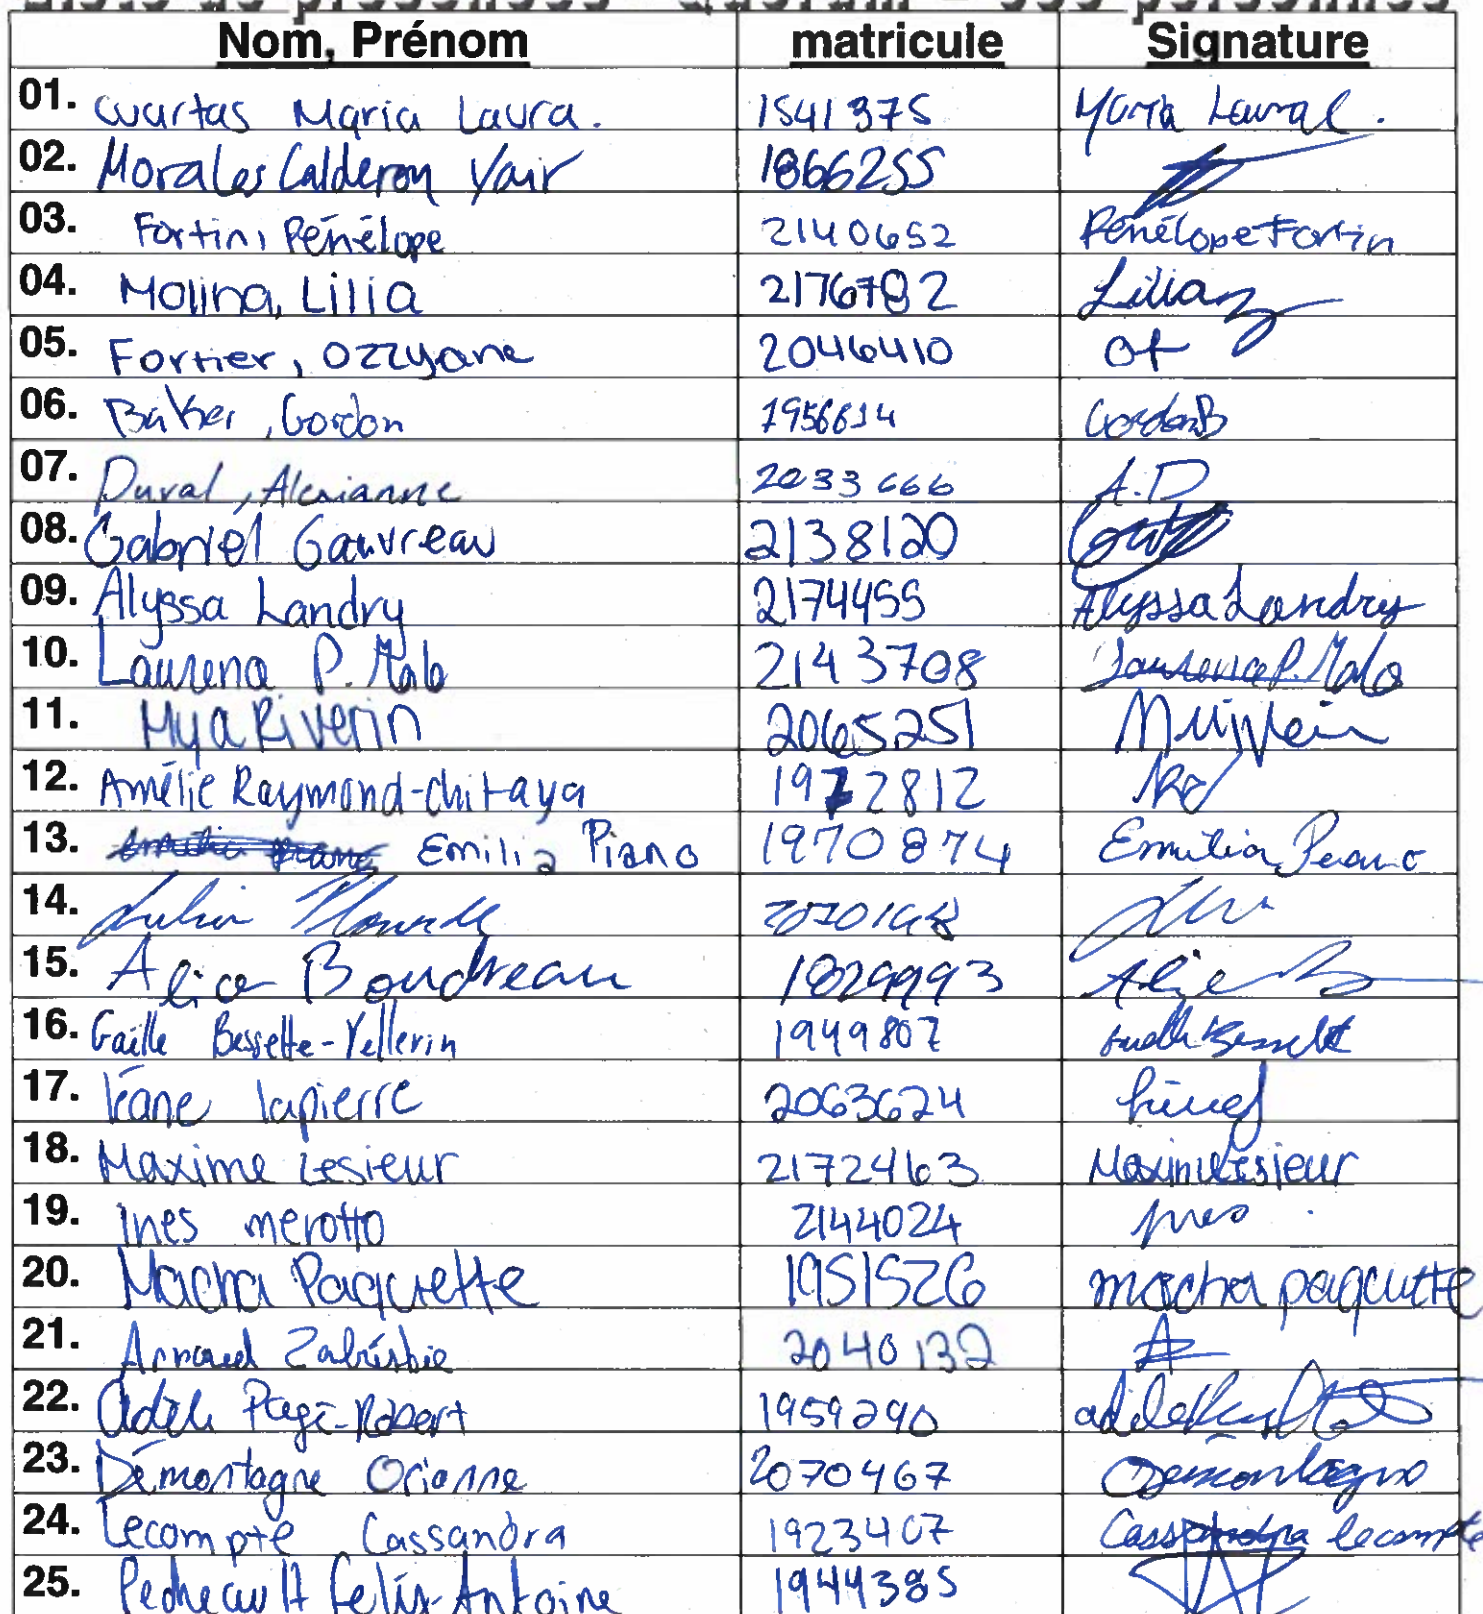 Liste de présences - Quorum = 335 personnes
Nom, Prénom matricule Signature
01. Cuartas Maria Laura. 1541375 Maria Laura C.
02. Morales Calderon Yair 1866255
03. Fortin, Pénélope 2140652 Pénélope Fortin
04. Molina, Lilia 2176782 Lilia
05. Fortier, Ozzyane 2046410 OF
06. Baker, Gordon 1956614 Gordon B
07. Duval, Alexianne 2033666 A.D
08. Gabriel Gauvreau 2138120
09. Alyssa Landry 2174455 Alyssa Landry
10. Laurena P. Malo 2143708 Laurena P. Malo
11. Mya Riverin 2065251
12. Amélie Raymond-Chitaya 1972812
13. Emilia Piano 1970874 Emilia Piano
14. 
15. Alice Boudreau 1829993 Alice B
16. Gaëlle Bessette-Pellerin 1949807 Gaëlle Bessette
17. Léane Lapierre 2063624
18. Maxime Lesieur 2172463 Maxime Lesieur
19. Ines merotto 2144024 Ines
20. Macha Paquette 1951526 macha paquette
21. Arnaud 2040132 A
22. Adèle Pagé-Robert 1959290
23. Démontagne Orianne 2070467 ODemontagne
24. Lecompte Cassandra 1923407 Cassandra lecompte
25. Pedneault Felix-Antoine 1944385